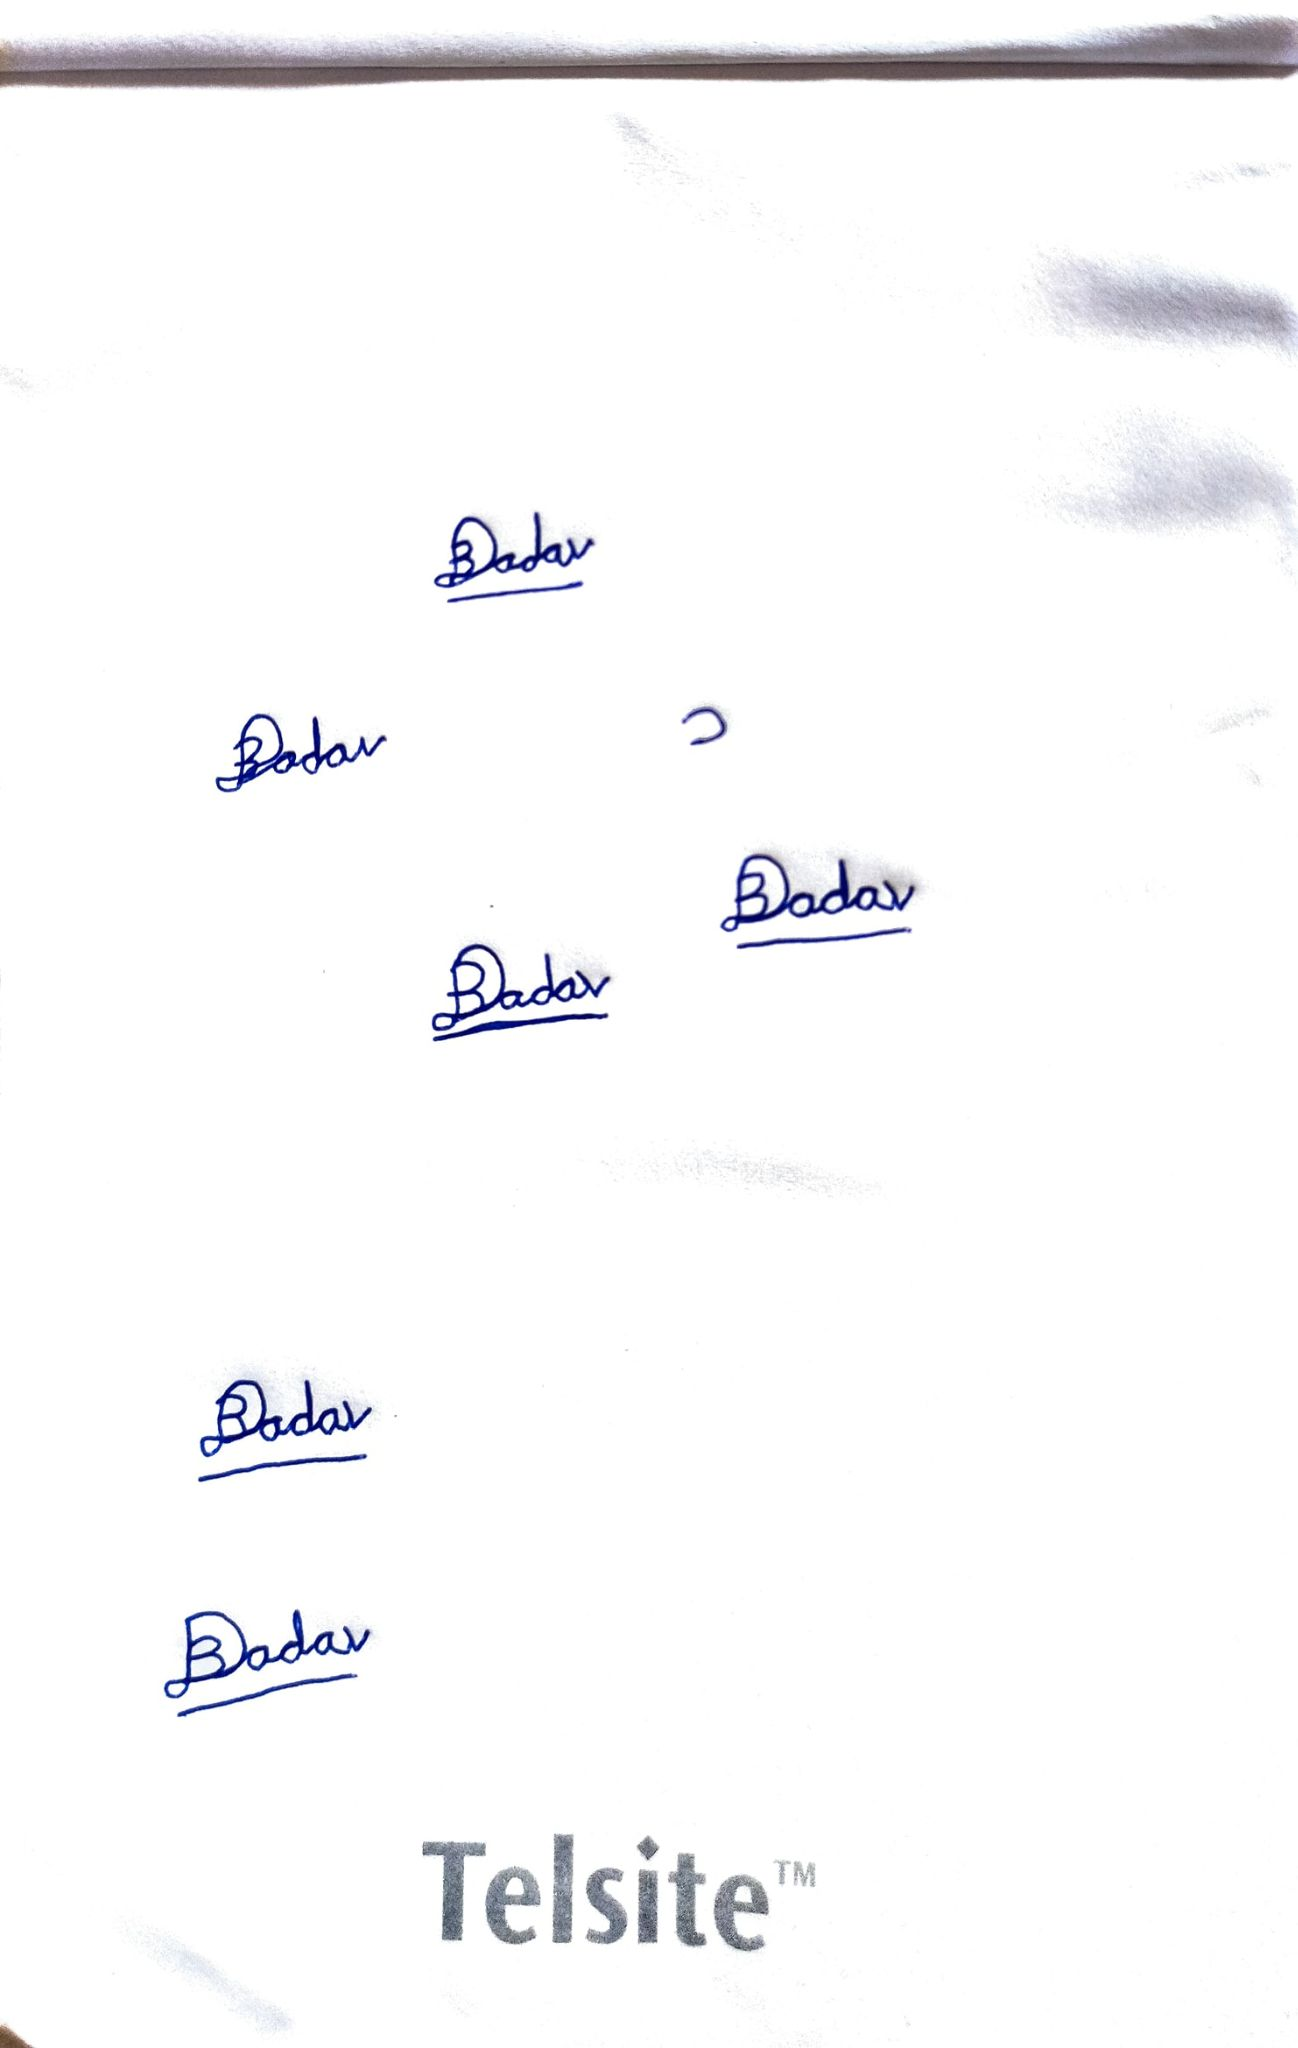 BDadav
BDadav
BDadav
BDadav
BDadav
BDadav
Telsite™